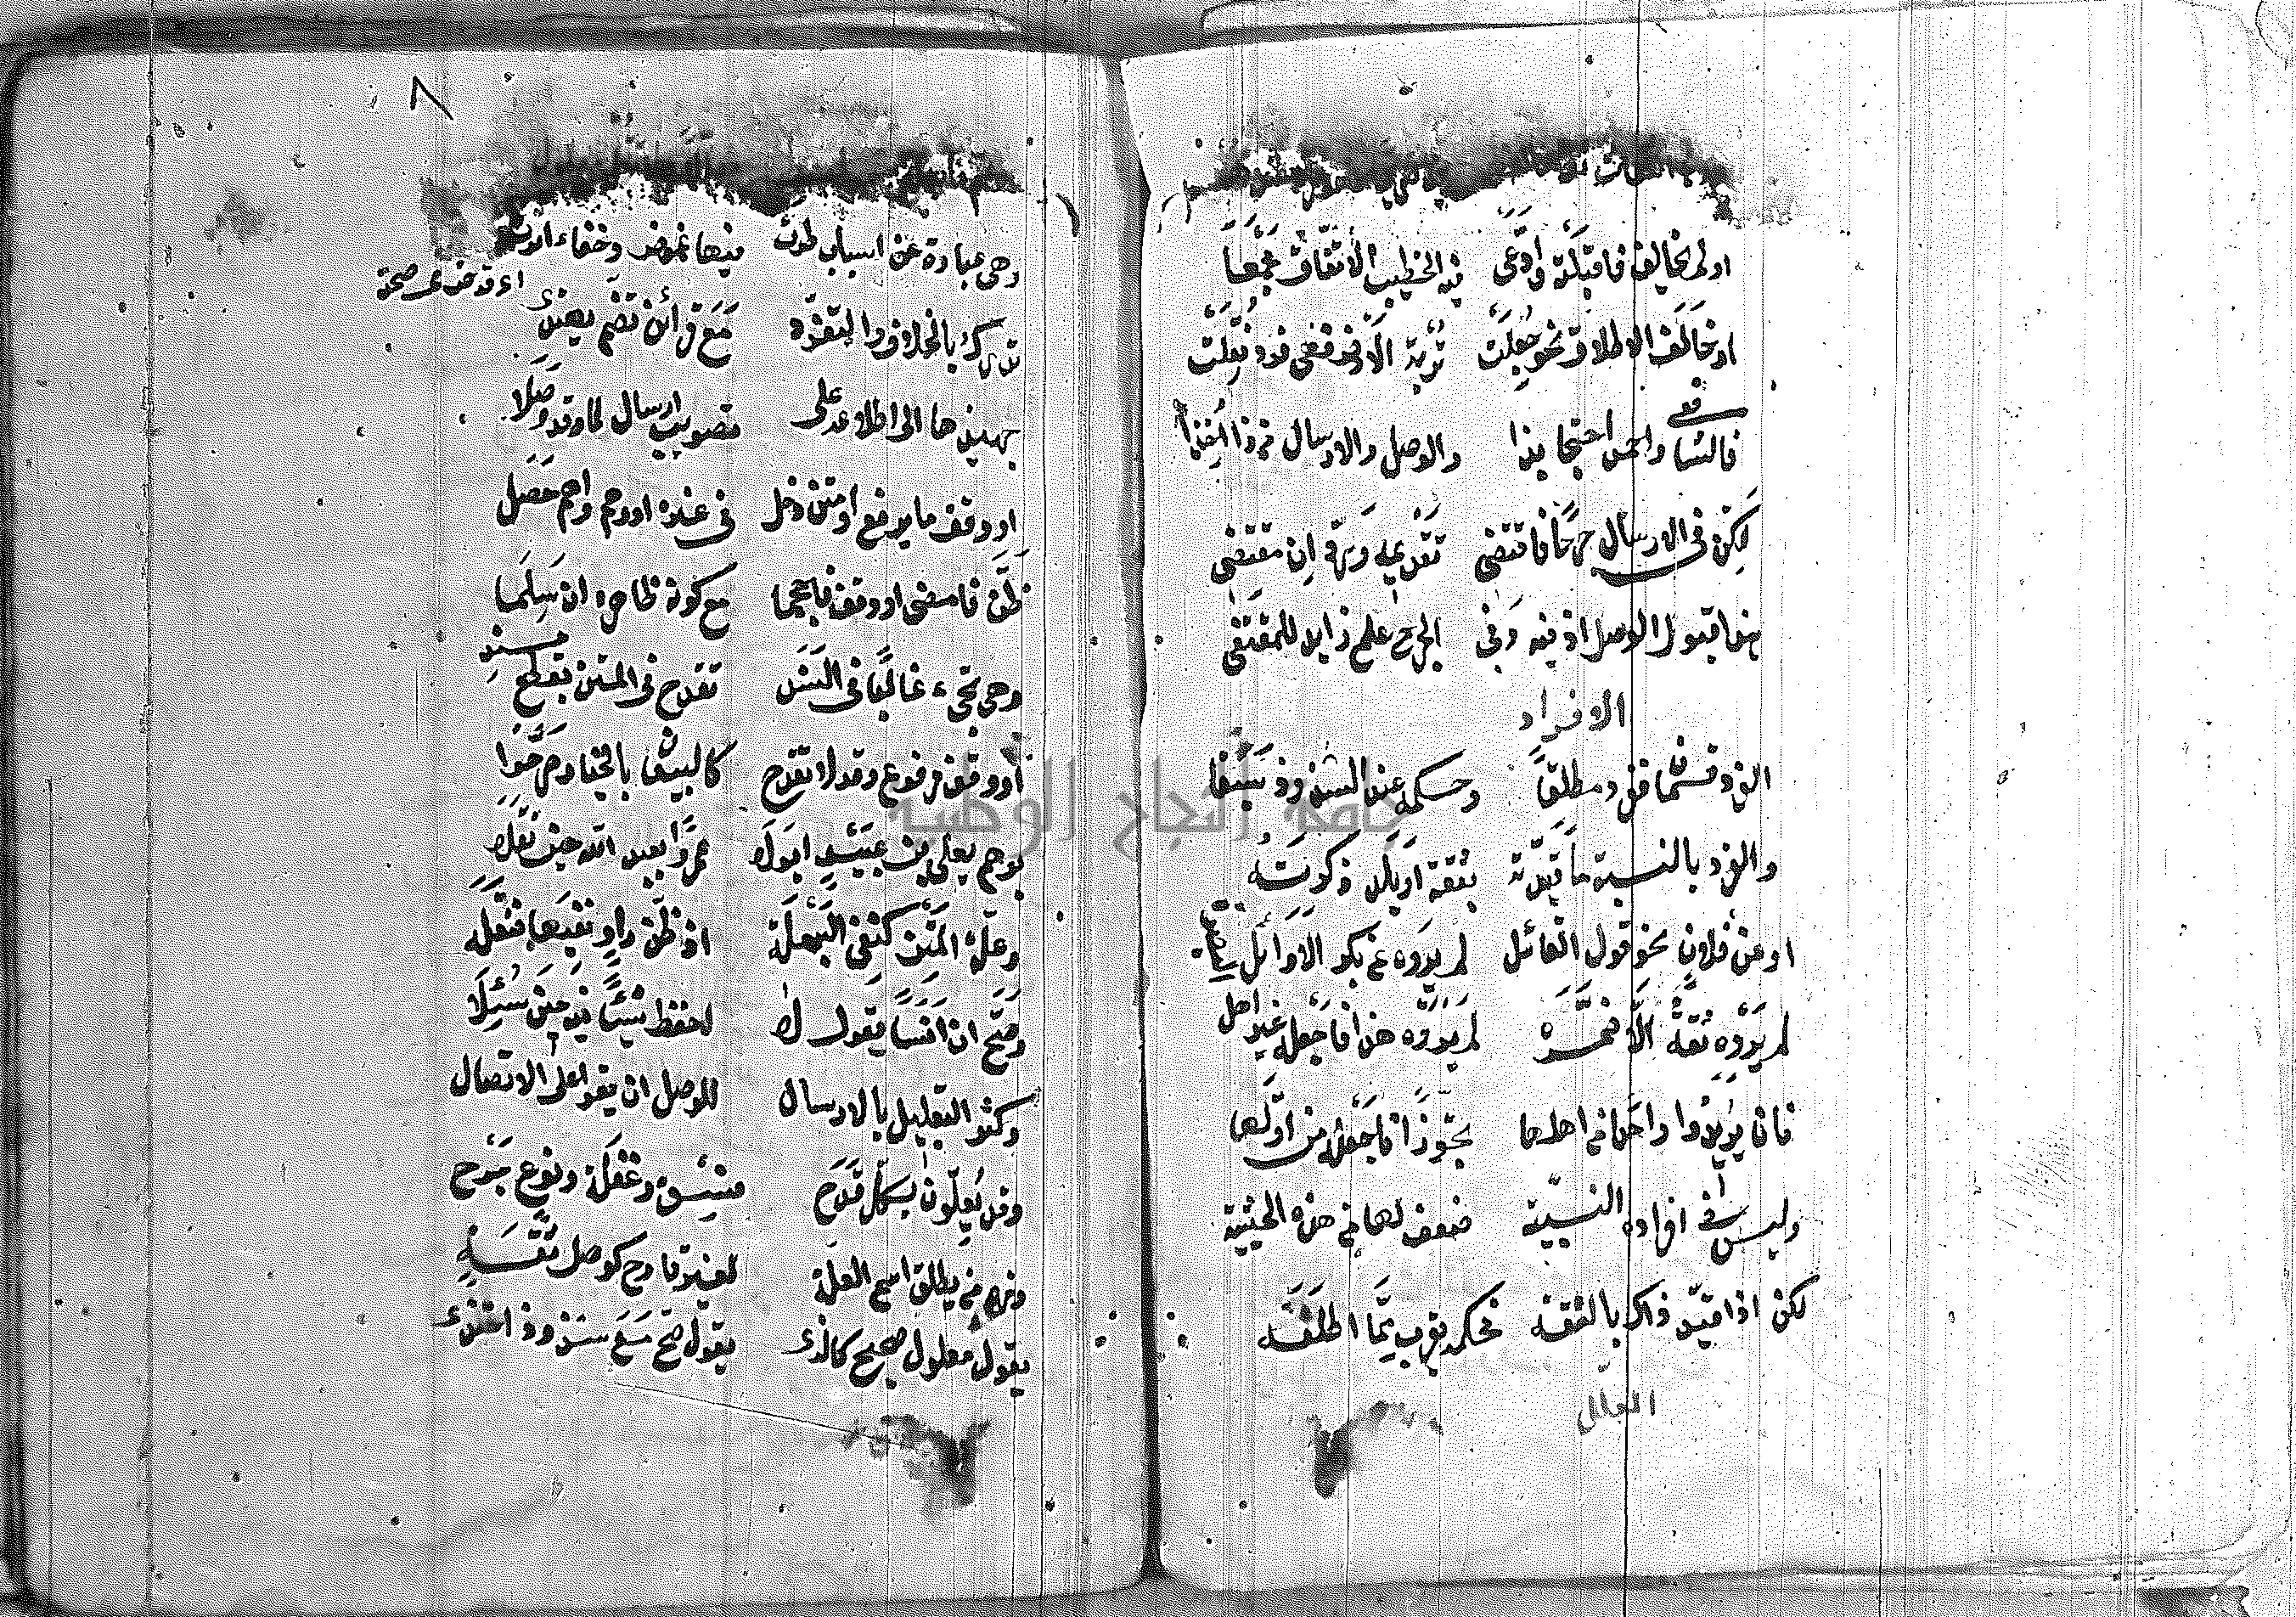 او لم يخالف فاقبلنه وادّعى فيه الخطيب الاتفاق مجمعا
او خالف الاطلاق نحو جعلت تربة الارض فهي فرد نقلت
فالشافعي واحمد احتجا بذا والوصل والارسال من ذا اخذا
لكن في الارسال جرحا فاقتضى تقديمه وردّ ان مقتضى
هذا قبول الوصل اذ فيه وفي الجرح علم زايد للمقتفي
الافراد
الفرد قسمان ففرد مطلقا وحكمه عند الشذوذ سبقا
والفرد بالنسبة ما قيدته بثقة او بلد ذكرته
او عن فلان نحو قول القائل لم يروه عن بكر الا وائل
لم يروه ثقة الا ضمره لم يرو هذا غير اهل البصره
فان يريدوا واحدا من اهلها تجوزا فاجعله من اولها
وليس في افراده النسبية ضعف لها من هذه الحيثية
لكن اذا قيد ذاك بالثقة فحكمه يقرب مما اطلقه
العلل
٨
وهي عبارة عن اسباب طرت فيها غموض وخفاء اثرت
تدرك بالخلاف والتفرد مع قرائن تضم يهتدي
جهبذها الى اطلاعه على تصويب ارسال لما قد وصلا
او وقف ما يرفع او متن دخل في غيره او وهم واهم حصل
ظن فامضى او وقف فاحجما مع كونه ظاهره ان سلما
وهي تجيء غالبا في السند تقدح في المتن بقطع مسند
او وقف مرفوع وقد لا تقدح كالبيعان بالخيار صرحوا
بوهم يعلى بن عبيد ابدلا عمروا بعبد الله حين نقلا
وعلة المتن كنفي البسملة اذ ظن راو نفيها فنقله
وصح ان انسا يقول لا احفظ شيئا فيه حين سئلا
وكثر التعليل بالارسال للوصل ان يقوا على الاتصال
وقد يعلون بكل قدح فسق وغفلة ونوع جرح
ومنهم من يطلق اسم العلة لغير قادح كوصل ثقة
يقول معلول صحيح كالذي يقول صح مع شذوذ احتذي